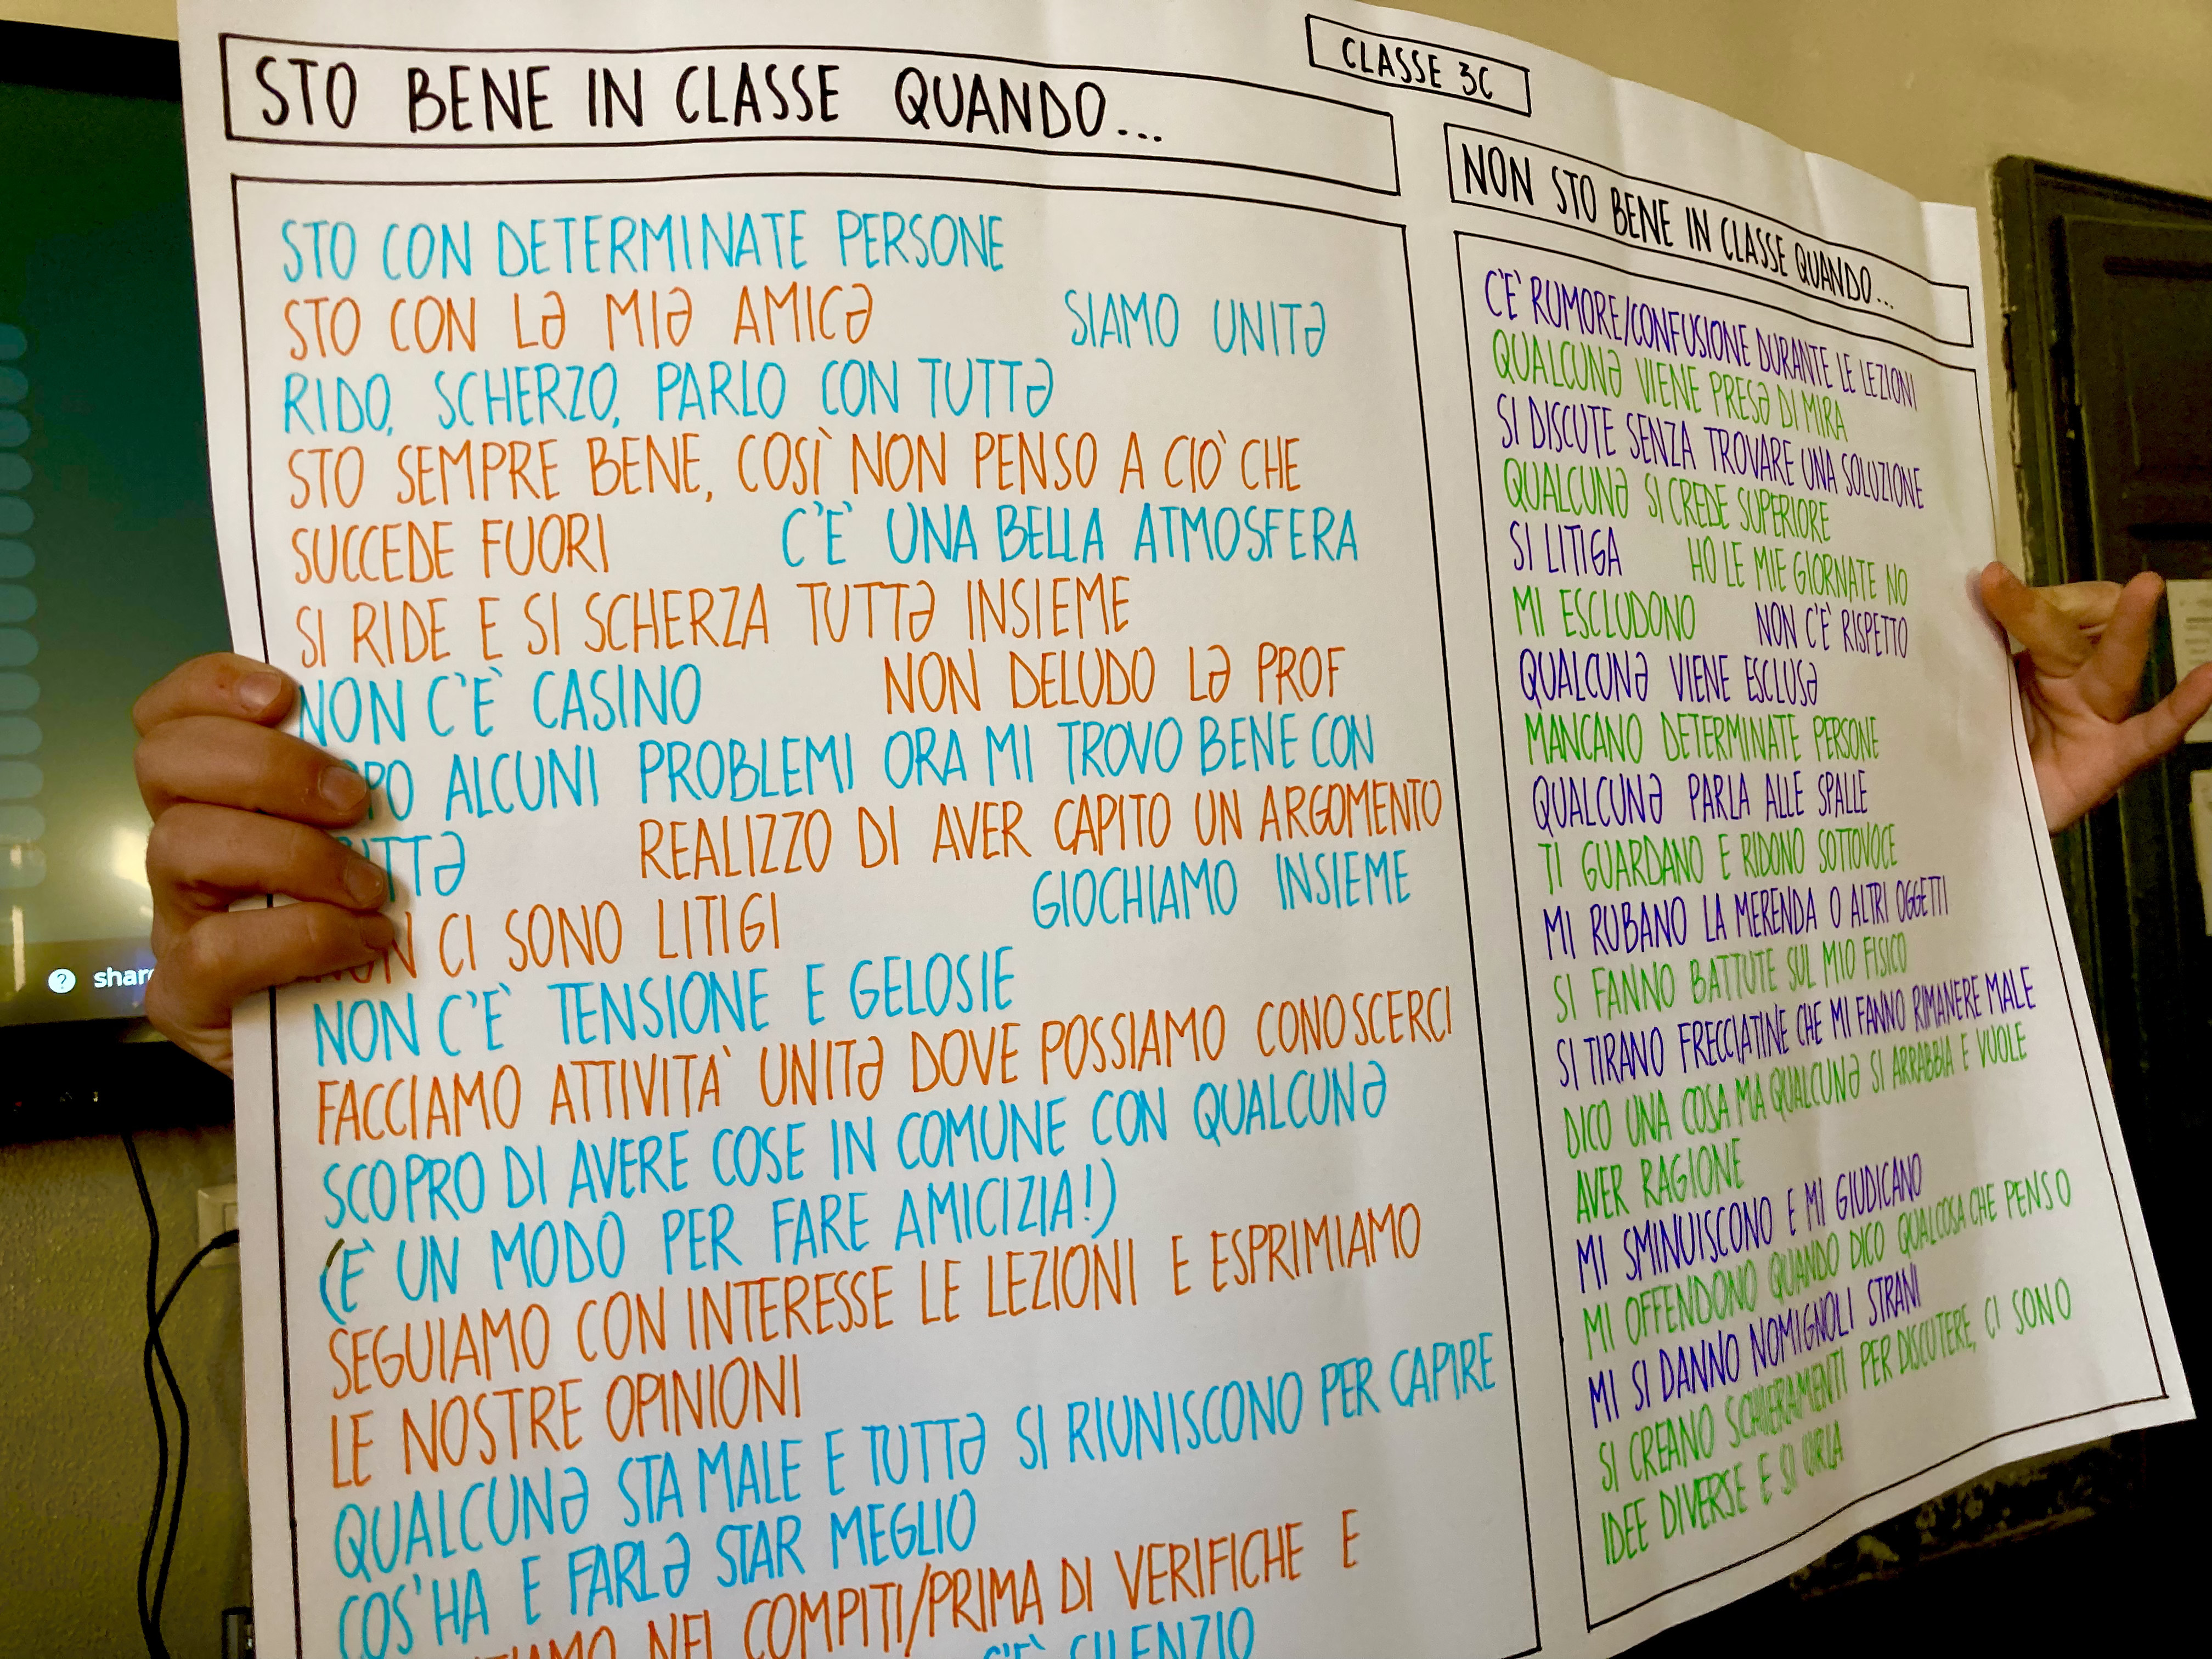 CLASSE 3C
STO BENE IN CLASSE QUANDO...
STO CON DETERMINATE PERSONE
STO CON LƏ MIƏ AMICƏ SIAMO UNITƏ
RIDO, SCHERZO, PARLO CON TUTTƏ
STO SEMPRE BENE, COSÌ NON PENSO A CIÒ CHE
SUCCEDE FUORI C'È UNA BELLA ATMOSFERA
SI RIDE E SI SCHERZA TUTTƏ INSIEME
NON C'È CASINO NON DELUDO LƏ PROF
PO ALCUNI PROBLEMI ORA MI TROVO BENE CON
TTƏ REALIZZO DI AVER CAPITO UN ARGOMENTO
NON CI SONO LITIGI GIOCHIAMO INSIEME
NON C'È TENSIONE E GELOSIE
FACCIAMO ATTIVITÀ UNITƏ DOVE POSSIAMO CONOSCERCI
SCOPRO DI AVERE COSE IN COMUNE CON QUALCUNƏ
(È UN MODO PER FARE AMICIZIA!)
SEGUIAMO CON INTERESSE LE LEZIONI E ESPRIMIAMO
LE NOSTRE OPINIONI
QUALCUNƏ STA MALE E TUTTƏ SI RIUNISCONO PER CAPIRE
COS'HA E FARLƏ STAR MEGLIO
NEI COMPITI/PRIMA DI VERIFICHE E
C'È SILENZIO
NON STO BENE IN CLASSE QUANDO...
C'È RUMORE/CONFUSIONE DURANTE LE LEZIONI
QUALCUNƏ VIENE PRESƏ DI MIRA
SI DISCUTE SENZA TROVARE UNA SOLUZIONE
QUALCUNƏ SI CREDE SUPERIORE
SI LITIGA HO LE MIE GIORNATE NO
MI ESCLUDONO NON C'È RISPETTO
QUALCUNƏ VIENE ESCLUSƏ
MANCANO DETERMINATE PERSONE
QUALCUNƏ PARLA ALLE SPALLE
TI GUARDANO E RIDONO SOTTOVOCE
MI RUBANO LA MERENDA O ALTRI OGGETTI
SI FANNO BATTUTE SUL MIO FISICO
SI TIRANO FRECCIATINE CHE MI FANNO RIMANERE MALE
DICO UNA COSA MA QUALCUNƏ SI ARRABBIA E VUOLE
AVER RAGIONE
MI SMINUISCONO E MI GIUDICANO
MI OFFENDONO QUANDO DICO QUALCOSA CHE PENSO
MI SI DANNO NOMIGNOLI STRANI
SI CREANO SCHIERAMENTI PER DISCUTERE, CI SONO
IDEE DIVERSE E SI URLA
? shar